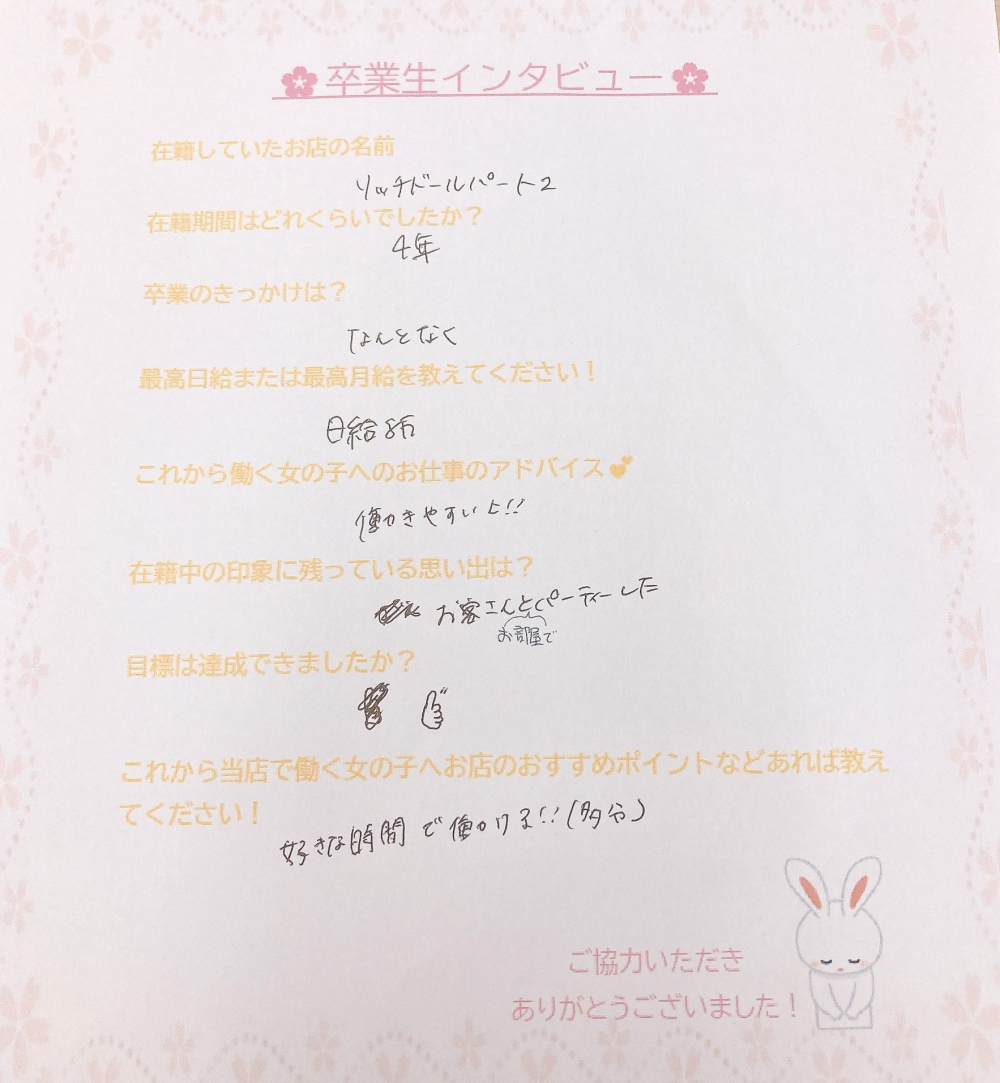 卒業生インタビュー
在籍していたお店の名前
リッチドールパート2
在籍期間はどれくらいでしたか？
4年
卒業のきっかけは？
なんとなく
最高日給または最高月給を教えてください！
日給8万
これから働く女の子へのお仕事のアドバイス💕
働きやすいよ!!
在籍中の印象に残っている思い出は？
お客さんとパーティーした
お部屋で
目標は達成できましたか？
これから当店で働く女の子へお店のおすすめポイントなどあれば教え
てください！
好きな時間で働ける!!(多分)
ご協力いただき
ありがとうございました！